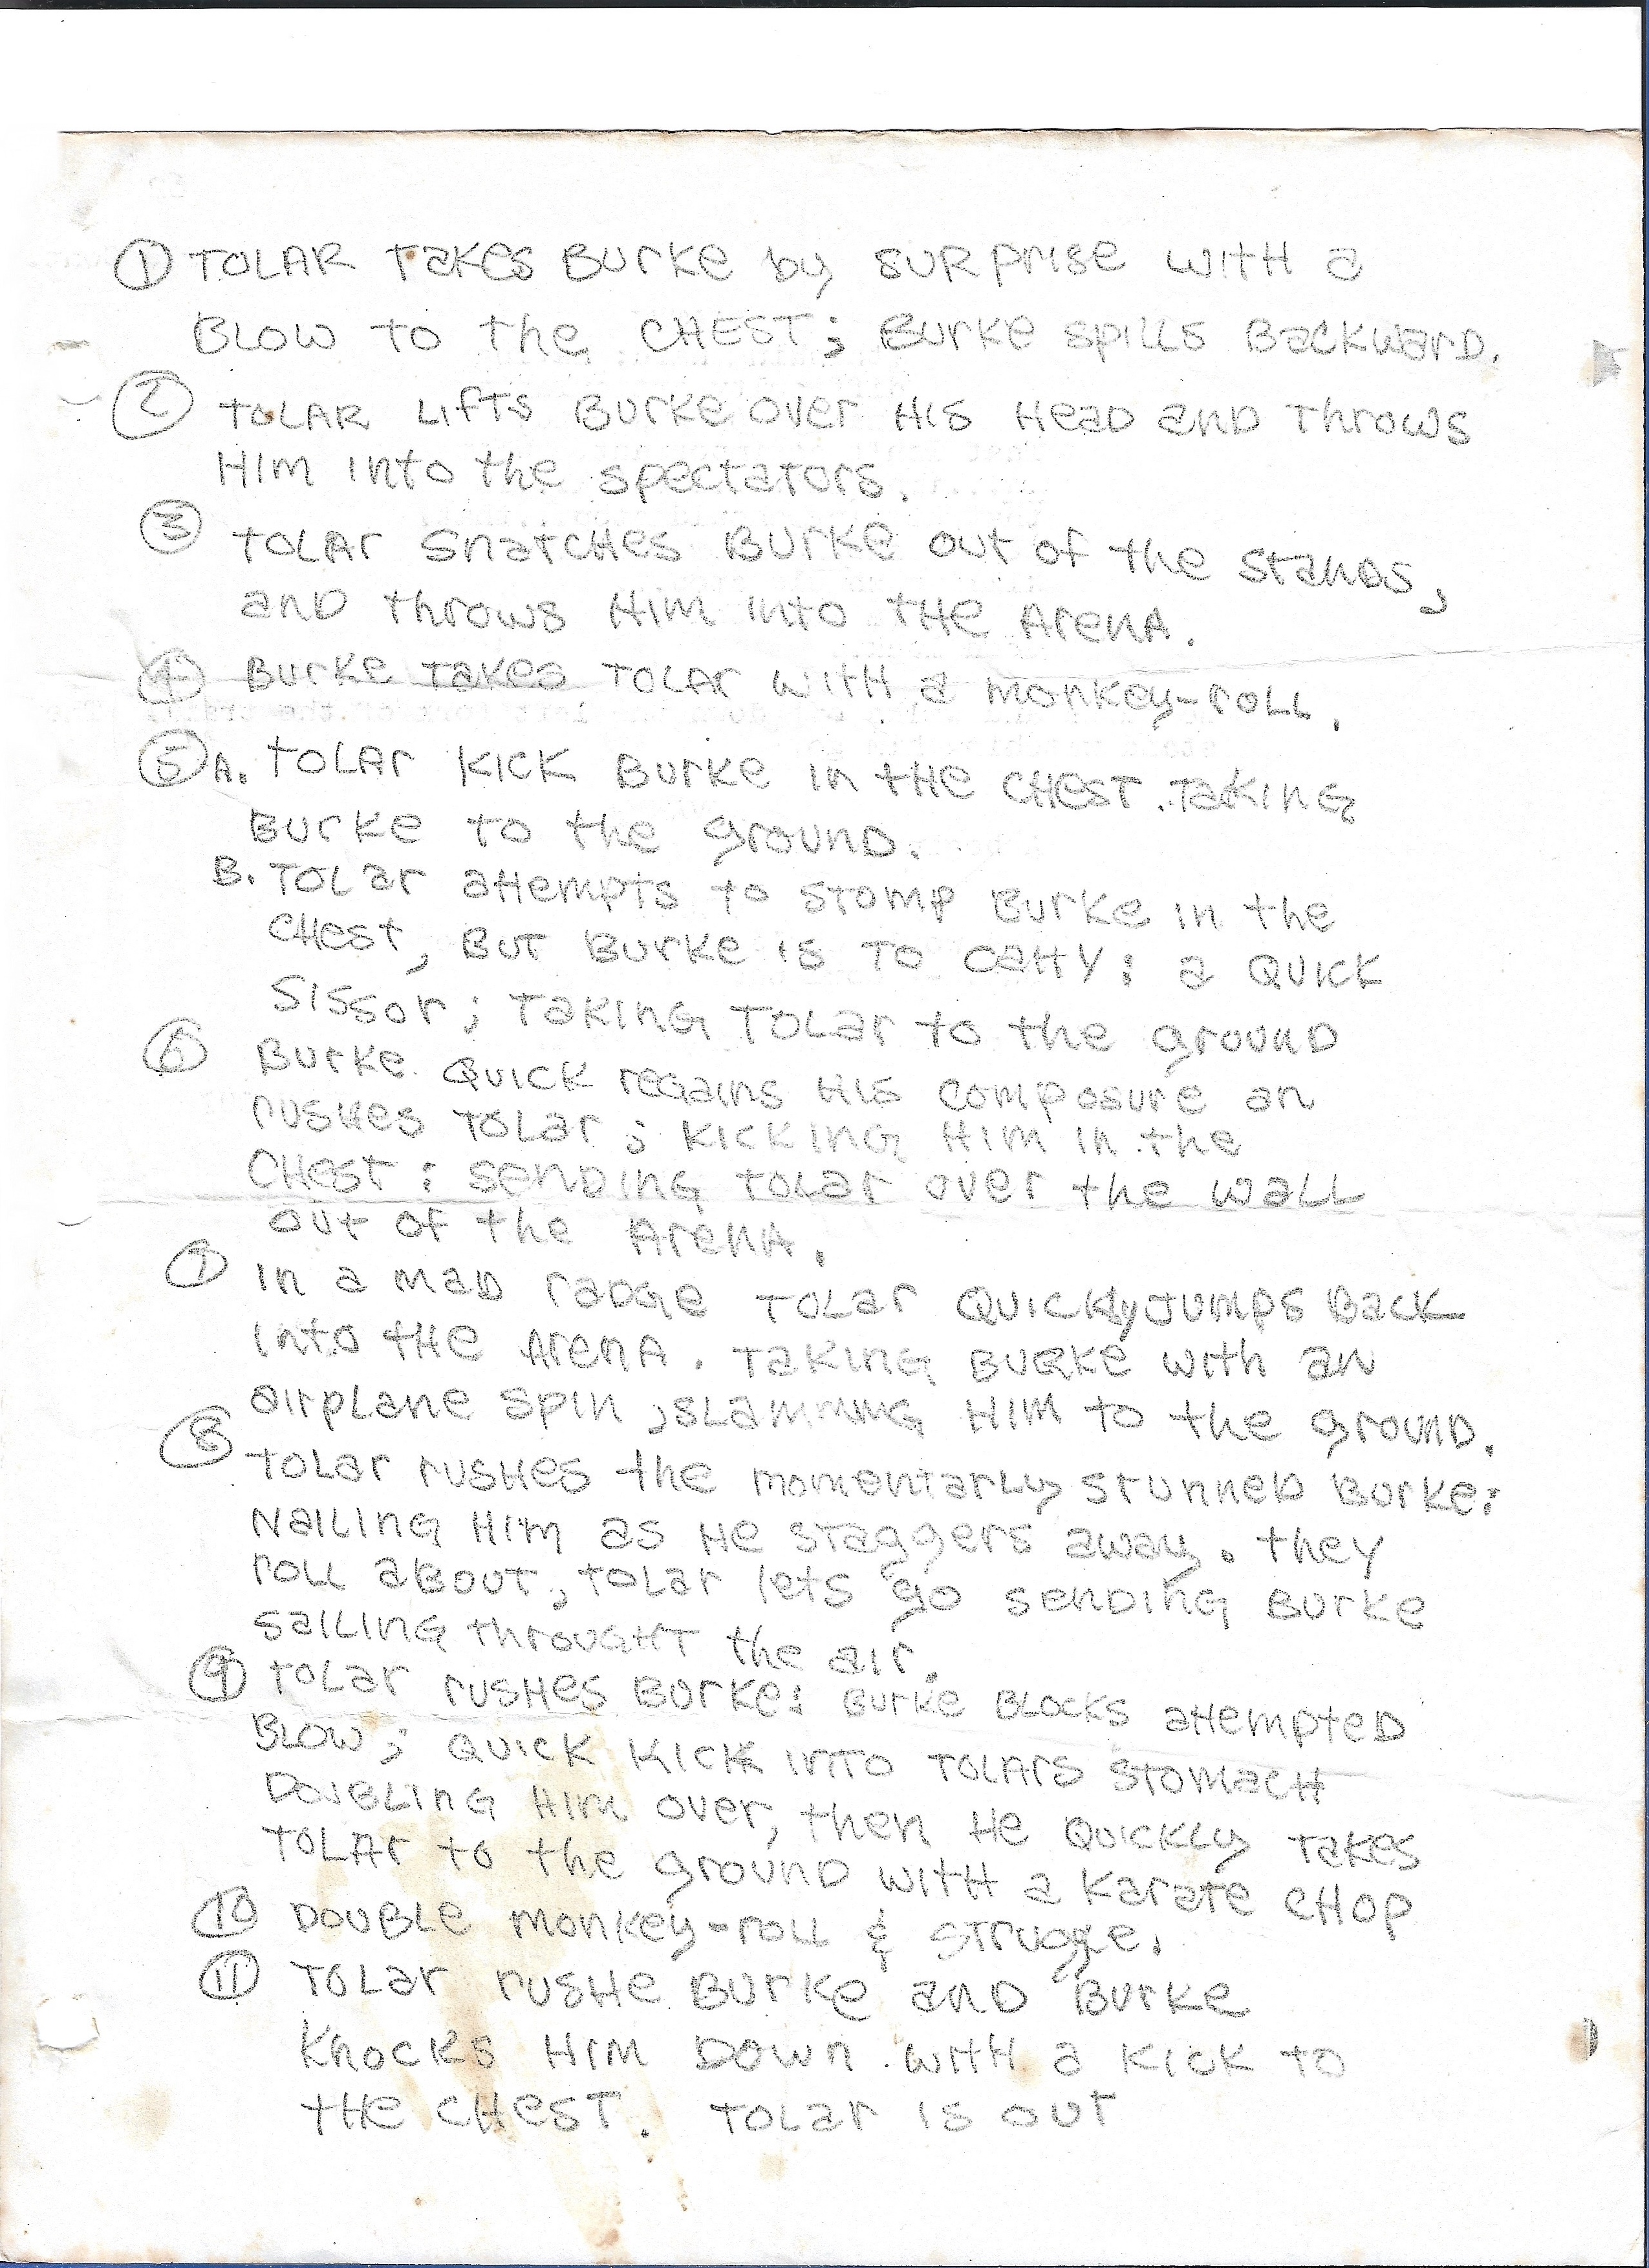 ① TOLAR TAKES BURKE by SURPRISE WITH a
BLOW TO the CHEST; BURKE SPILLS BACKWARD.
② TOLAR LIFTS BURKE OVER HIS HEAD AND THROWS
HIM INTO the SPECTATORS.
③ TOLAR SNATCHES BURKE OUT OF the STANDS,
AND THROWS HIM INTO THE ARENA.
④ BURKE TAKES TOLAR WITH a MONKEY-ROLL.
⑤ A. TOLAR KICK BURKE IN THE CHEST. TAKING
BURKE TO the GROUND.
B. TOLAR ATTEMPTS TO STOMP BURKE IN the
CHEST, BUT BURKE IS TO CATTY; a QUICK
SISSOR; TAKING TOLAR TO the GROUND
⑥ BURKE QUICK REGAINS HIS COMPOSURE AN
RUSHES TOLAR; KICKING HIM IN the
CHEST; SENDING TOLAR OVER the WALL
OUT OF the ARENA.
⑦ IN a MAD RADGE TOLAR QUICKLY JUMPS BACK
INTO THE ARENA. TAKING BURKE WITH AN
AIRPLANE SPIN, SLAMMING HIM TO the GROUND.
⑧ TOLAR RUSHES the MOMENTARLY STUNNED BURKE;
NAILING HIM AS HE STAGGERS AWAY. THEY
ROLL ABOUT, TOLAR LETS GO SENDING BURKE
SAILING THROUGHT the AIR.
⑨ TOLAR RUSHES BURKE; BURKE BLOCKS ATTEMPTED
BLOW; QUICK KICK INTO TOLARS STOMACH
DOUBLING HIM OVER, THEN HE QUICKLY TAKES
TOLAR TO the GROUND WITH a KARATE CHOP
⑩ DOUBLE MONKEY-ROLL & STRUGGLE.
⑪ TOLAR RUSHE BURKE AND BURKE
KNOCKS HIM DOWN WITH a KICK TO
THE CHEST. TOLAR IS OUT